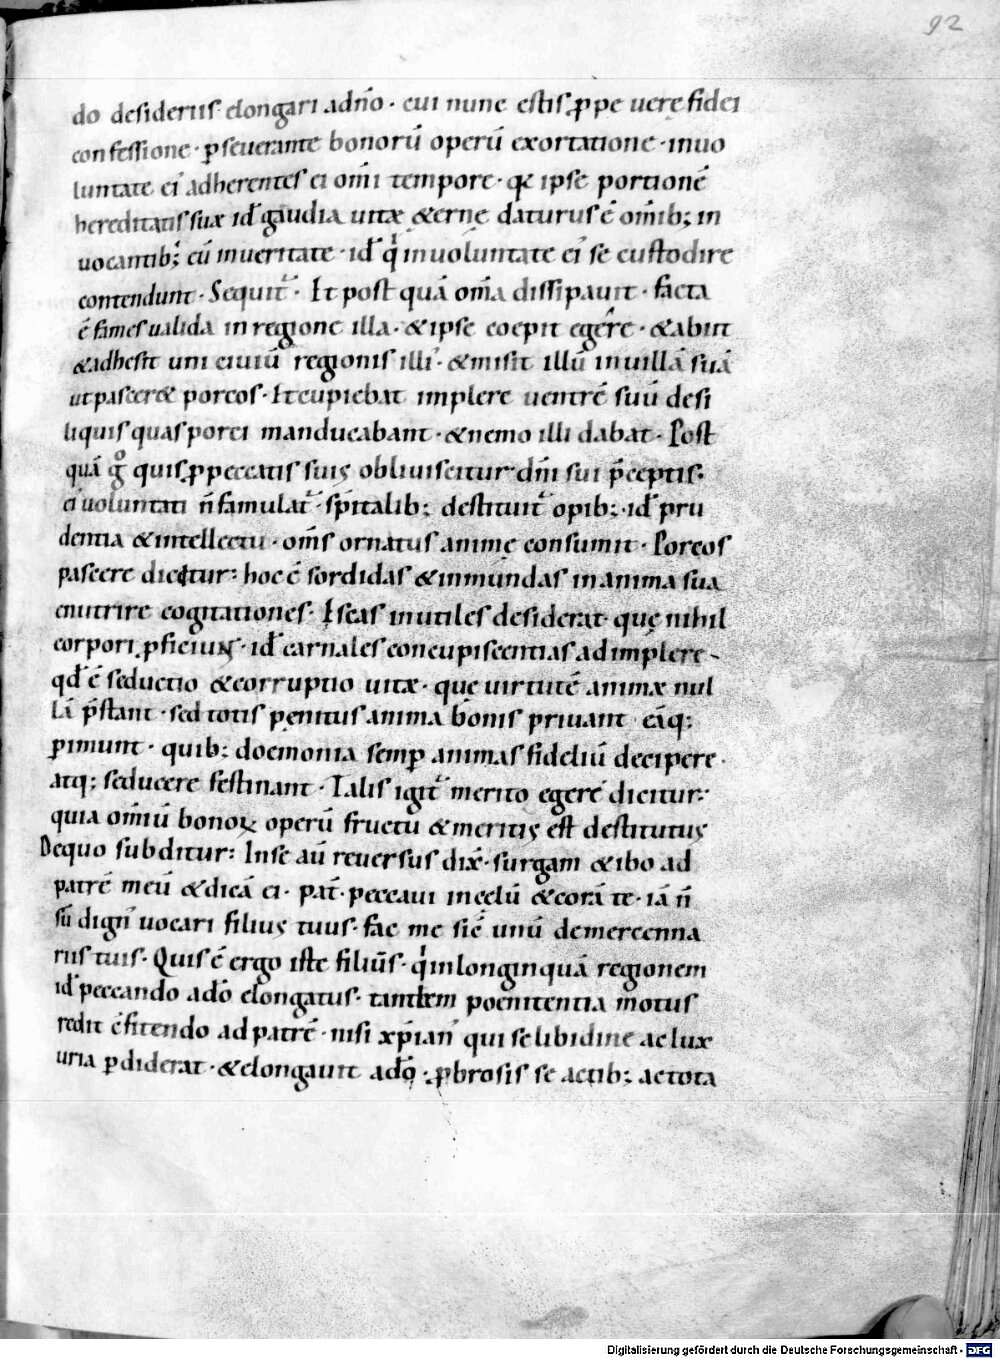 92
do desideriis elongari adn̄o · cui nunc estis ꝓpe uerę fidei
confessione · ꝑseuerante bonorū operū exortatione · inuo
luntate ei᾽ adherentes ei om̄i tempore · qƺ ipse portionē
hereditatis suæ id᷎ gaudia uitæ &ernę daturus ē om̄ib; in
uocantib; eū inueritate · id᷎ qͥ inuoluntate ei᾽ se custodire
contendunt · Sequit᷑ · Et post quā om̄a dissipauit · facta
ē fames ualida in regione illa · & ipse coepit egere · & abiit
& adhesit uni ciuiū regionis illi᾽ · & misit illū inuillā suā
ut pascer& porcos · Et cupiebat implere uentrē suū desi
liquis quas porci manducabant · & nemo illi dabat · Post
quā gͦ quis ꝓ peccatis suis obliuiscitur dn̄i sui p̄ceptis ·
ei᾽ uoluntati n̄ famulat᷑ · sp̄italib; destituit᷑ opib; · id᷎ pru
dentia & intellectu · om̄s ornatus animę consumit · Porcos
pascere dicitur: hoc ē sordidas & inmundas in anima sua
enutrire cogitationes · Escas inutiles desiderat · quę nihil
corpori ꝓficiunt · id᷎ carnales concupiscentias adimplere ·
qd᷎ ē seductio & corruptio uitæ · quę uirtutē animæ nul
lā p̄stant · sed totis pęnitus anima bonis priuant eāq;
ꝑimunt · quib; doemonia semꝑ animas fideliū decipere ·
atq; seducere festinant · Talis igit᷑ merito egere dicitur:
quia om̄iū bonoꝝ operū fructu & meritis est destitutus
Dequo subditur: Inse aū reuersus dix̄ · surgam & ibo ad
patrē meū & dicā ei · pat̄ · peccaui in cęlū & corā te · iā n̄
sū dign᾽ uocari filius tuus · fac me sic̄ unū demercenna
riis tuis · Quis ē ergo iste filius · qͥ inlonginquā regionem
id᷎ peccando adō elongatus · tandem poenitentia motus
redit c̄fitendo ad patrē · nisi xp̄ian᾽ qui se libidine ac lux
uria ꝑdiderat · & elongauit adō · ꝓbrosis se actib; ac tota
Digitalisierung gefördert durch die Deutsche Forschungsgemeinschaft - DFG